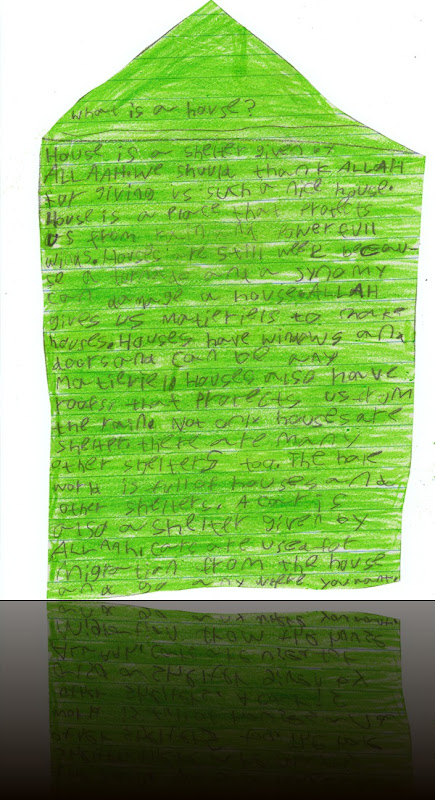 what is a house?
House is a shelter given by
ALLAAH.We should thank ALLAH
for giving us such a nice house.
House is a place that Protects
us from rain and Powerfull
winds.Houses are still week becau
se a tornado and a synomy
can damage a house.ALLAH
gives us Matieriels to make
houses.Houses have windows and
doors and can be any
Matieriel. Houses also have
roofs that Protects us from
the rain. Not only houses are
shelter. there are many
other shelters too. The hole
world is full of houses and
other shelters. A car is
also a shelter given by
ALLAAH. cars are used for
migration from the house
and go any where you want.